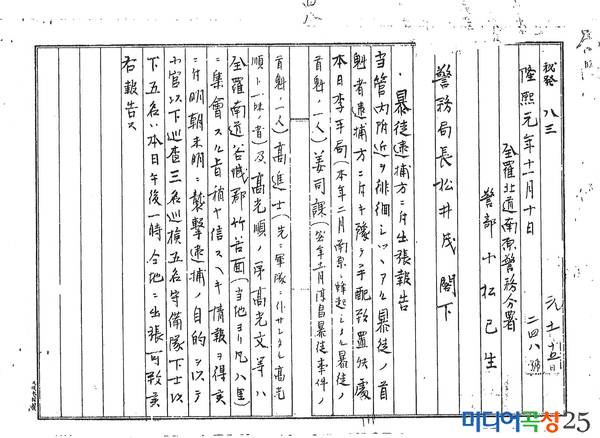 秘発 八三
隆熙元年十一月十日
全羅北道南原警務分署
警部 小松己生
警務局長松井茂閣下
暴徒逮捕方ニ付出張報告
当管内附近ヲ徘徊シツヽアル暴徒ノ首
魁者逮捕方ニ付キ予テ配置処
本日李平局(本年二月南原ニ蜂起シタル暴徒ノ
首魁ノ一人)姜司課(本年十月淳昌暴徒事件ノ
首魁ノ一人)高進士(先ニ軍隊ニ仕サレタル高光
順ト一味ノ者)及高光順ノ弟高光文等ハ
全羅南道谷城郡竹谷面(当地ヨリ凡八里)
ニ集會スル旨稍々信スヘキ情報ヲ得
付明朝未明ニ襲撃逮捕ノ目的ヲ以テ
小官以下巡査三名巡検五名守備隊下士以
下五名ハ本日午後一時
右報告ス
미디어곡성25